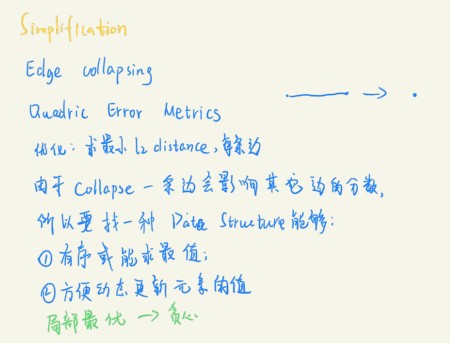 Simplification
Edge collapsing
Quadric Error Metrics
优化：求最小 L2 distance，每条边
由于 Collapse 一条边会影响其它边的分数，
所以要找一种 Data Structure 能够：
① 有序或能求最值；
② 方便动态更新元素的值
局部最优 → 贪心